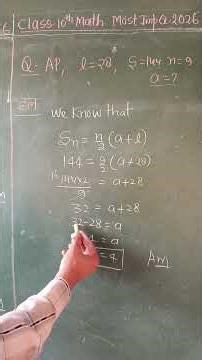 Class 10th Math Most Imp Q. 2026
Q. AP, l=28, S=144 n=9
a=?
हल
we know that
Sn = n/2 (a+l)
144 = 9/2 (a+28)
= a+28
32 = a+28
32-28 = a
= a
Am